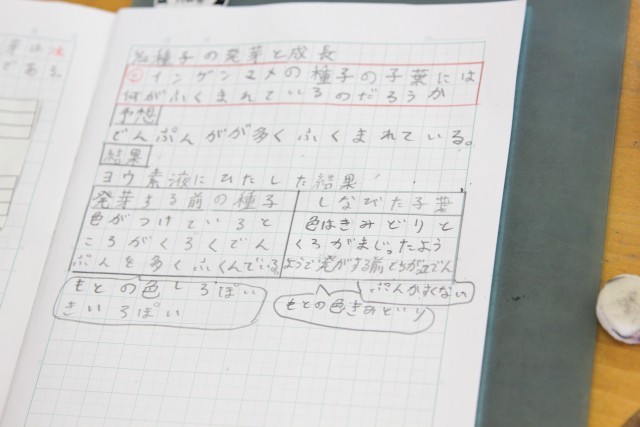 種子の発芽と成長
インゲンマメの種子の子葉には
何がふくまれているのだろうか
予想
でんぷんがが多くふくまれている。
結果
ヨウ素液にひたした結果
発芽する前の種子
色がつけているると
ころがくろくでん
ぷんを多くふくんでいる
もとの色しろぽい
きいろぽい
しなびた子葉
色はきみどりと
くろがまじったよう
ぷんがすくない
もとの色きみどり